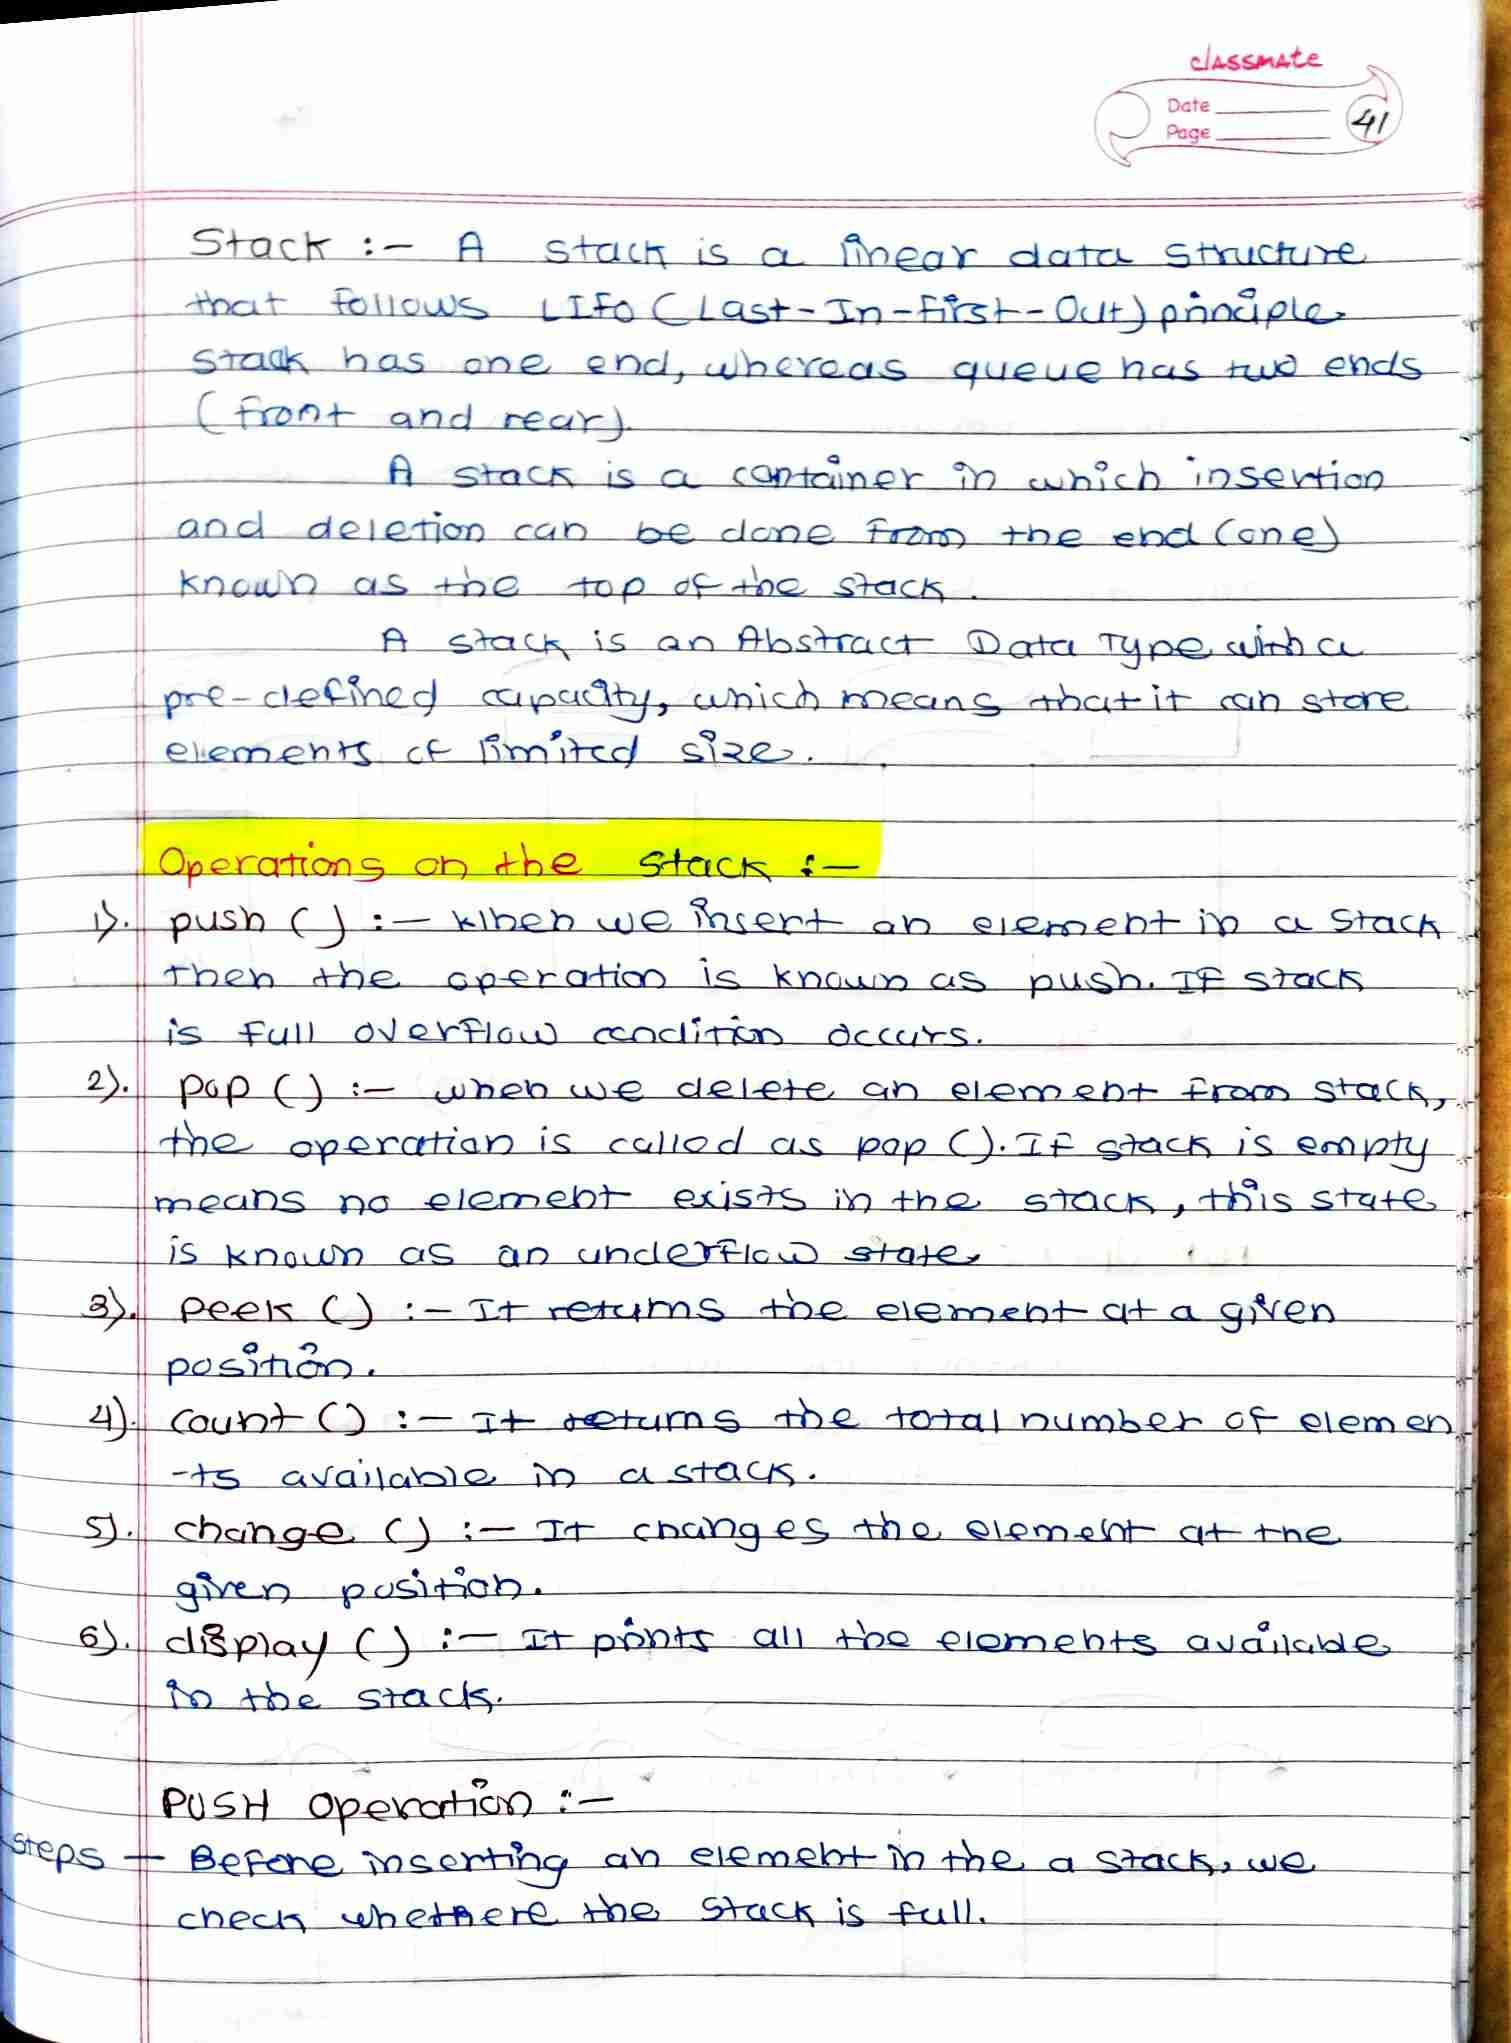 classmate
Date
Page
41
Stack :- A stack is a linear data structure
that follows LIFO (Last-In-First-Out) principle.
Stack has one end, whereas queue has two ends
(front and rear).
A stack is a container in which insertion
and deletion can be done from the end (one)
known as the top of the stack.
A stack is an Abstract Data Type with a
pre-defined capacity, which means that it can store
elements of limited size.
Operations on the stack :-
1). push () :- When we insert an element in a stack
then the operation is known as push. If stack
is full overflow condition occurs.
2). pop () :- when we delete an element from stack,
the operation is called as pop (). If stack is empty
means no element exists in the stack, this state
is known as an underflow state.
3). peek () :- It returns the element at a given
position.
4). count () :- It returns the total number of elemen
-ts available in a stack.
5). change () :- It changes the element at the
given position.
6). display () :- It prints all the elements available
in the stack.
PUSH Operation :-
Steps - Before inserting an element in the a stack, we
check whethere the stack is full.